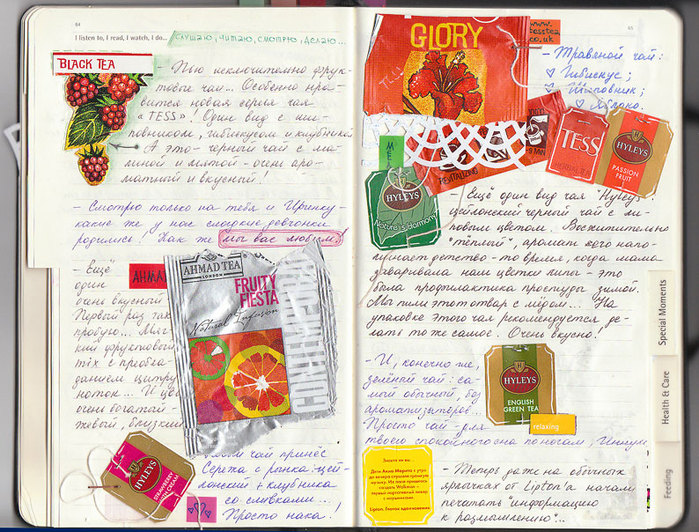 64
I listen to, I read, I watch, I do...
слушаю, читаю, смотрю, делаю...
BLACK TEA
- Пью исключительно фрук-
товые чаи... Особенно нра-
вится новая серия чая
«TESS»! Один вид с ши-
повником, гибискусом и клубникой
А это - черный чай с ма-
линой и мятой - очень аро-
матный и вкусный!
- Смотрю только на тебя и Иринку -
какие же у нас сладкие девчонки
родились! Как же мы вас любим!
- Ещё
один
очень вкусный
Первый раз так
пробую...
кий фруктовый
mix с преобла-
данием цитру
ноток... И цве
очень богатый -
живой, близкий
AHMAD TEA
LONDON
FRUITY
FIESTA
Natural Infusion
HYLEYS
STRAWBERRY
чай принёс
Серёга с рынка - цей-
лонский + клубника
со сливками...
Просто нака!
65
www.
.co.uk
GLORY
- Травяной чай:
♡ Гибискус;
♡ Шиповник;
♡ Яблоко.
TESS
HYLEYS
PASSION
FRUIT
HYLEYS
Nature's Harmony
- Ещё один вид чая "Hyleys"
цейлонский черный чай с ли-
повым цветом. Восхитительно
"тёплый", аромат его напо-
минает детство - то время, когда мама
заваривала нам цветки липы - это
была профилактика простуды зимой.
Мы пили этот отвар с мёдом... На
упаковке этого чая рекомендуется де-
лать то же самое. Очень вкусно!
- И, конечно же,
зелёный чай: са-
мый обычный, без
ароматизаторов.
Просто чай - для
твоего спокойного сна по ночам,
HYLEYS
ENGLISH
GREEN TEA
relaxing
- Теперь даже на обычных
ярлычках от Lipton'а начали
печатать "информацию
к размышлению"...
Знаете ли вы...
Special Moments
Health & Care
Feeding